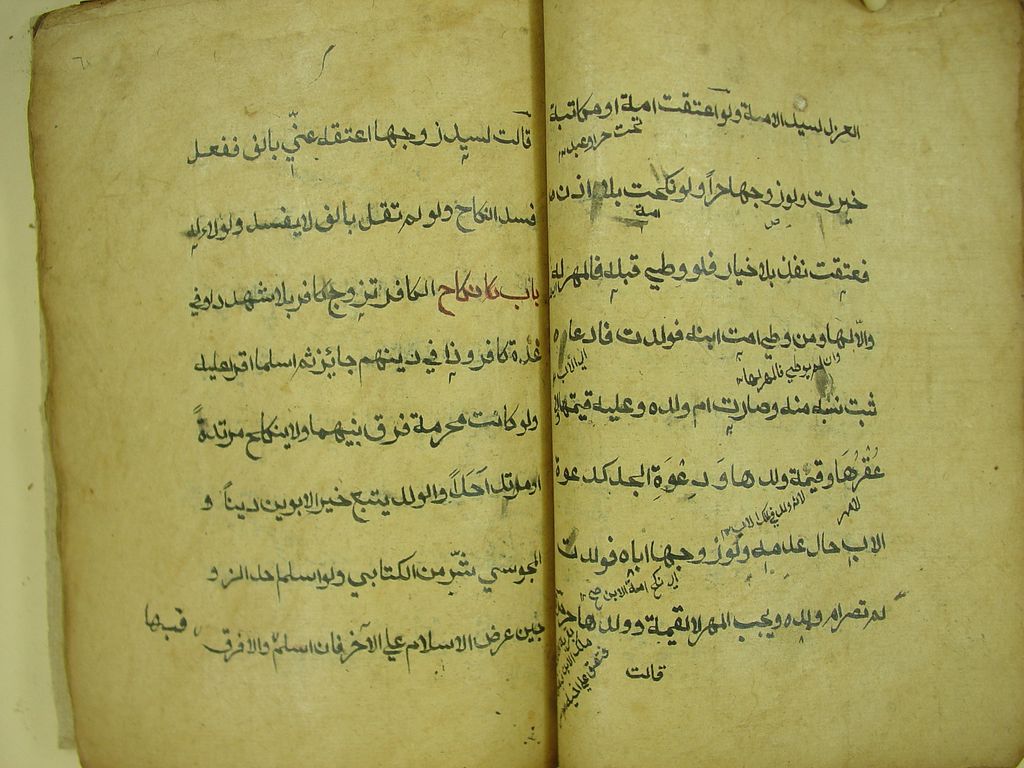 العزل لسيد الامة ولو اعتقت امة او مكاتبة
تحت حر او عبد
خيرت ولو زوجها حرا ولو نكحت بلا اذن
امة
فعتقت نفذ بلا خيار فلو وطي قبله فالمهر له
والا لها ومن وطي امت ابنه فولدت فادعاه
وان لم يوطي فالمهر لها
ثبت نسبه منه وصارت ام ولده وعليه قيمتها لا
عُقْرُهَا وقيمة ولدها وَدِعْوَةِ الجد كدعوة
الاب حال عدمه ولو زوجها اباه فولدت
اي نكح امة الابن صح
لم تصر ام ولده ويجب المهر لا القيمة وولدها حر
قالت
قالت لسيد زوجها اعتقه عنّي بالف ففعل
فسد النكاح ولو لم تقل بالف لا يفسد والولاء له
باب نكاح الكافر تزوج كافر بلا شهود او في
عدة كافر وذا في دينهم جائز ثم اسلما اقر عليه
ولو كانت محرمة فرق بينهما ولا ينكح مرتدةً
او مرتد احَداً والولد يتبع خير الابوين ديناً و
المجوسي شرّ من الكتابي ولو اسلم احد الزو
جين عرض الاسلام علي الآخر فان اسلم والا فرق